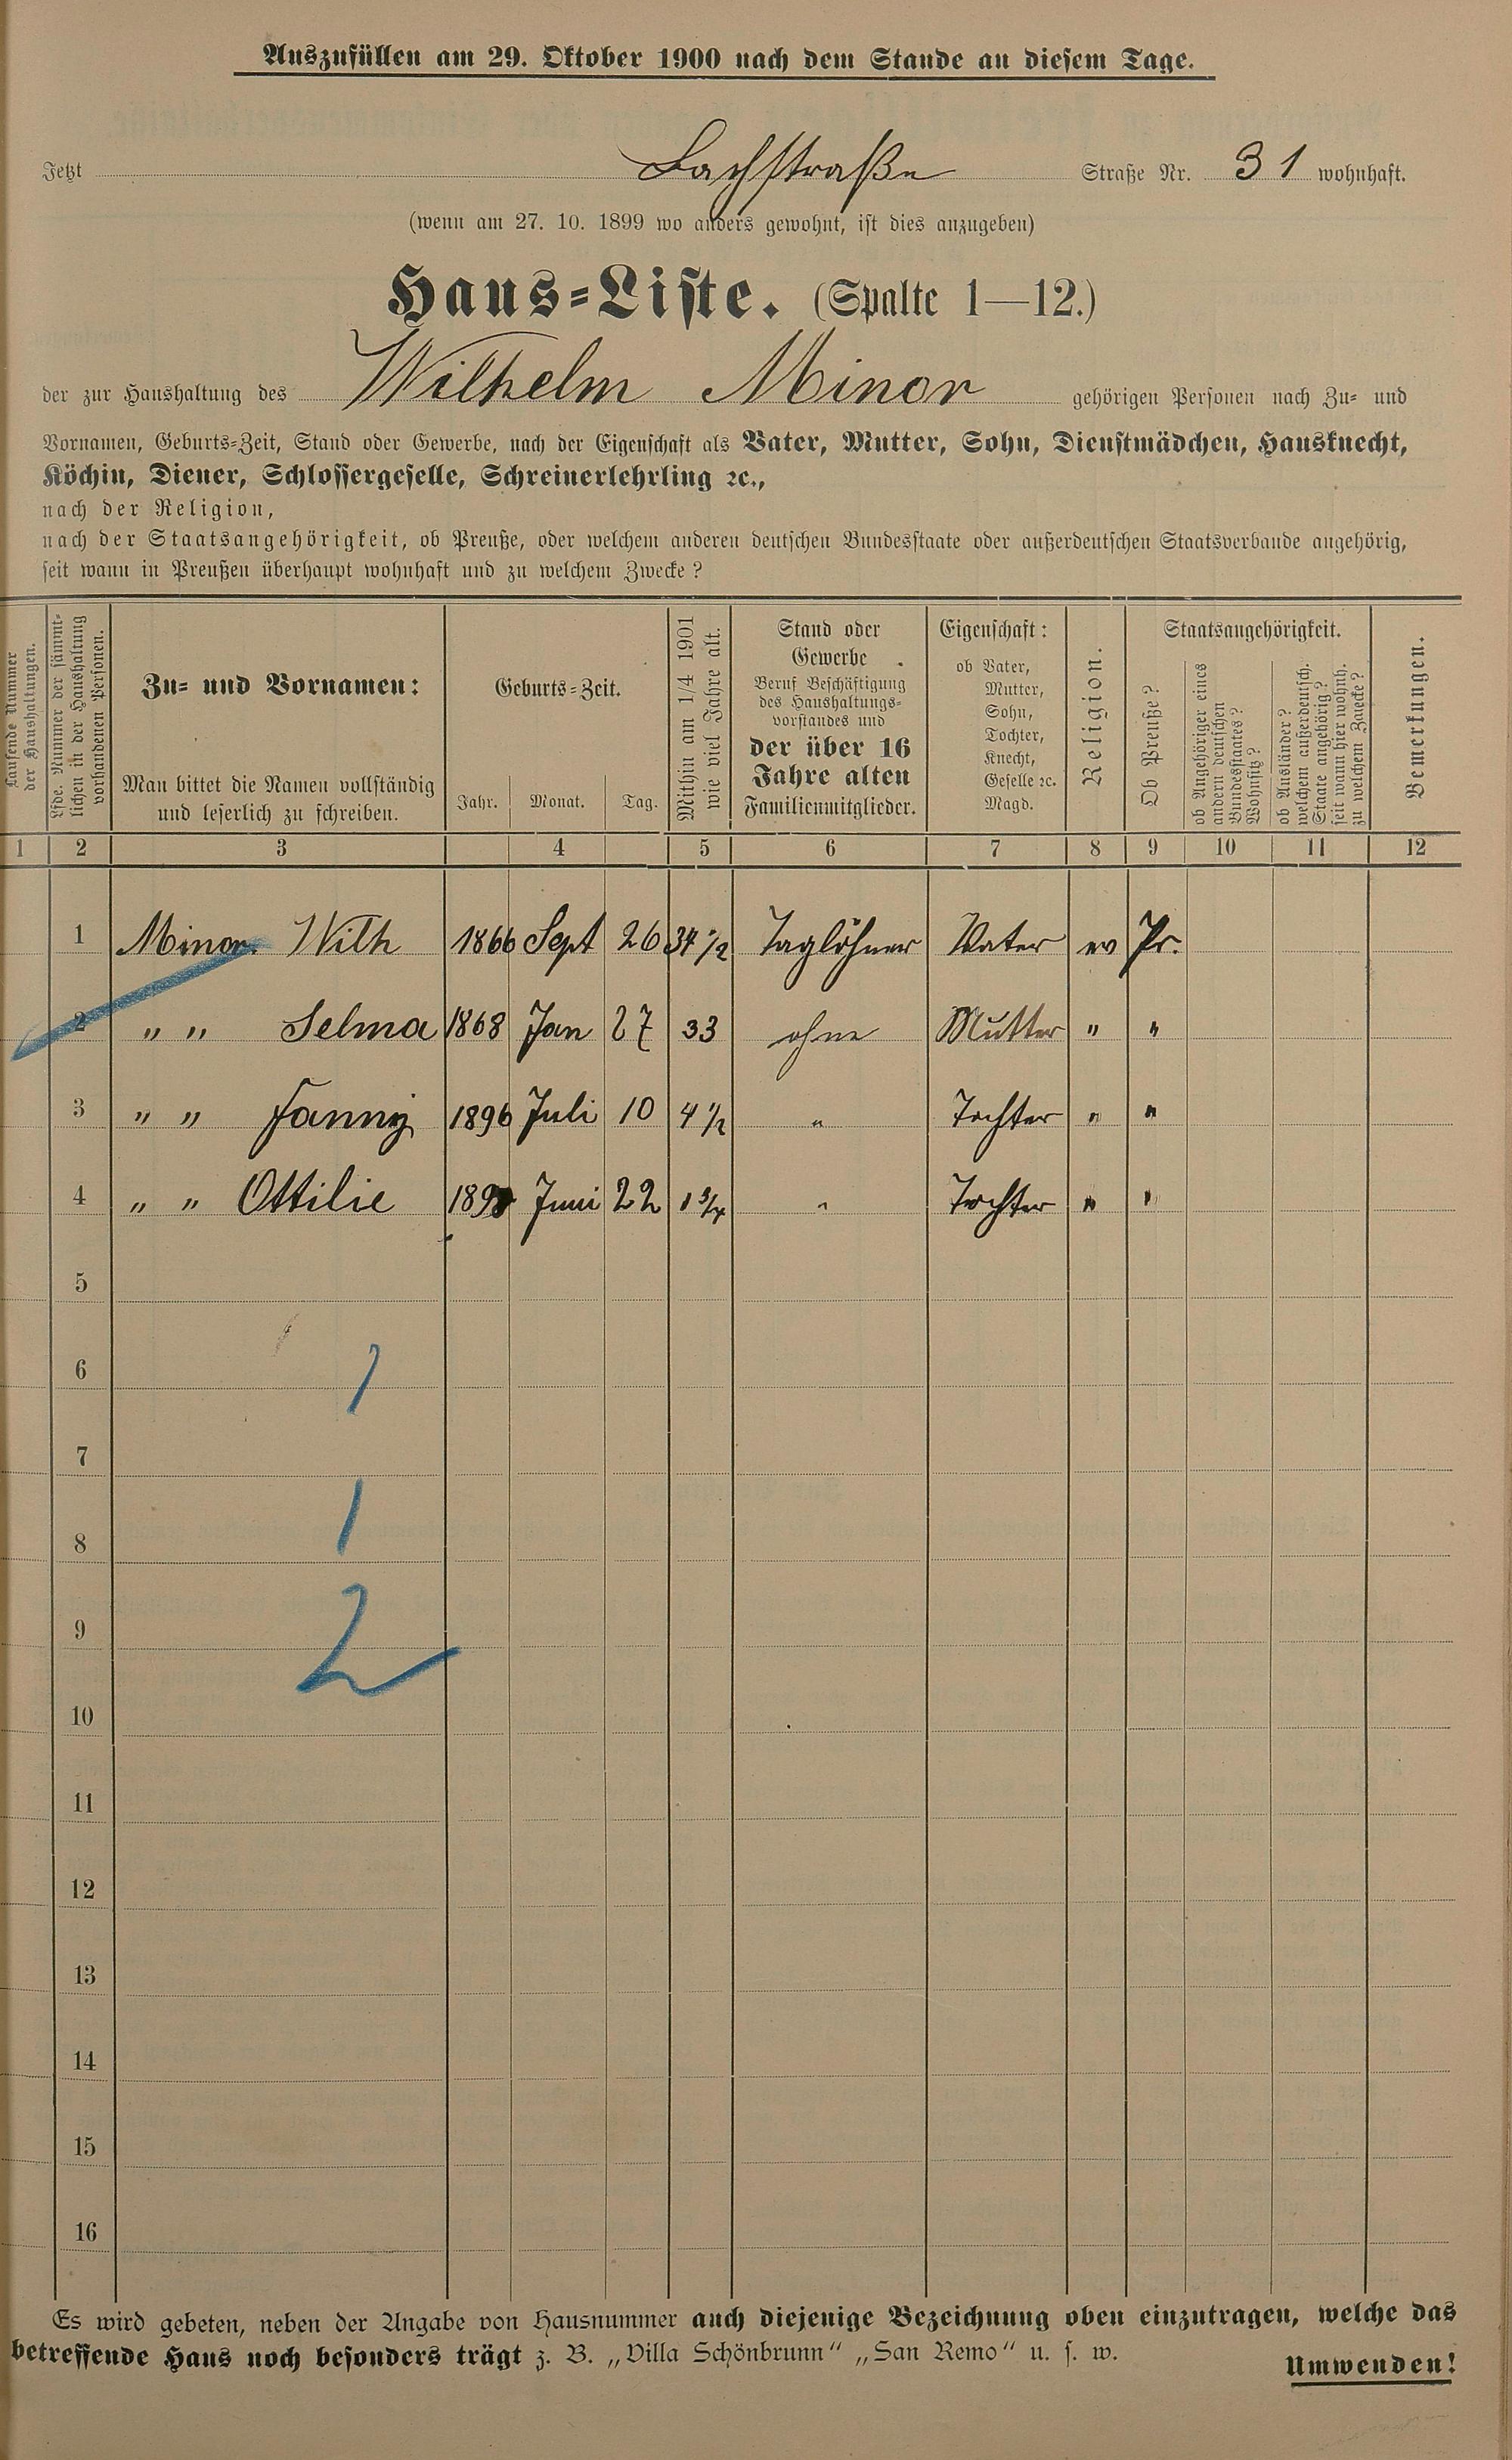 Auszufüllen am 29. Oktober 1900 nach dem Stande an diesem Tage.
Jetzt Bachstraße Straße Nr. 31 wohnhaft.
(wenn am 27. 10. 1899 wo anders gewohnt, ist dies anzugeben)
Haus-Liste. (Spalte 1—12.)
der zur Haushaltung des Wilhelm Minor gehörigen Personen nach Zu- und
Vornamen, Geburts-Zeit, Stand oder Gewerbe, nach der Eigenschaft als Vater, Mutter, Sohn, Dienstmädchen, Hausknecht,
Köchin, Diener, Schlossergeselle, Schreinerlehrling ꝛc.,
nach der Religion,
nach der Staatsangehörigkeit, ob Preuße, oder welchem anderen deutschen Bundesstaate oder außerdeutschen Staatsverbande angehörig,
seit wann in Preußen überhaupt wohnhaft und zu welchem Zwecke?
Laufende Nummer
der Haushaltungen.
Lfde. Nummer der sämmt-
lichen in der Haushaltung
vorhandenen Personen.
Zu- und Vornamen:
Man bittet die Namen vollständig
und leserlich zu schreiben.
Geburts-Zeit.
Jahr. Monat. Tag.
Mithin am 1/4 1901
wie viel Jahre alt.
Stand oder
Gewerbe
Beruf Beschäftigung
des Haushaltungs-
vorstandes und
der über 16
Jahre alten
Familienmitglieder.
Eigenschaft:
ob Vater,
Mutter,
Sohn,
Tochter,
Knecht,
Geselle ꝛc.
Magd.
Religion.
Staatsangehörigkeit.
Ob Preuße?
ob Angehöriger eines
andern deutschen
Bundesstaates?
Wohnsitz?
ob Ausländer?
welchem außerdeutsch.
Staate angehörig?
seit wann hier wohnh.
zu welchem Zwecke?
Bemerkungen.
1 2 3 4 5 6 7 8 9 10 11 12
1 Minor Wilh 1866 Sept 26 34 1/2 Taglöhner Vater ev Pr.
2 " " Selma 1868 Jan 27 33 ohne Mutter " "
3 " " Fanny 1896 Juli 10 4 1/2 " Tochter " "
4 " " Ottilie Juni 22 1 3/4 " Tochter " "
5
6
1
7
8
1
9
2
10
11
12
13
14
15
16
Es wird gebeten, neben der Angabe von Hausnummer auch diejenige Bezeichnung oben einzutragen, welche das
betreffende Haus noch besonders trägt z. B. „Villa Schönbrunn" „San Remo" u. s. w.
Umwenden!